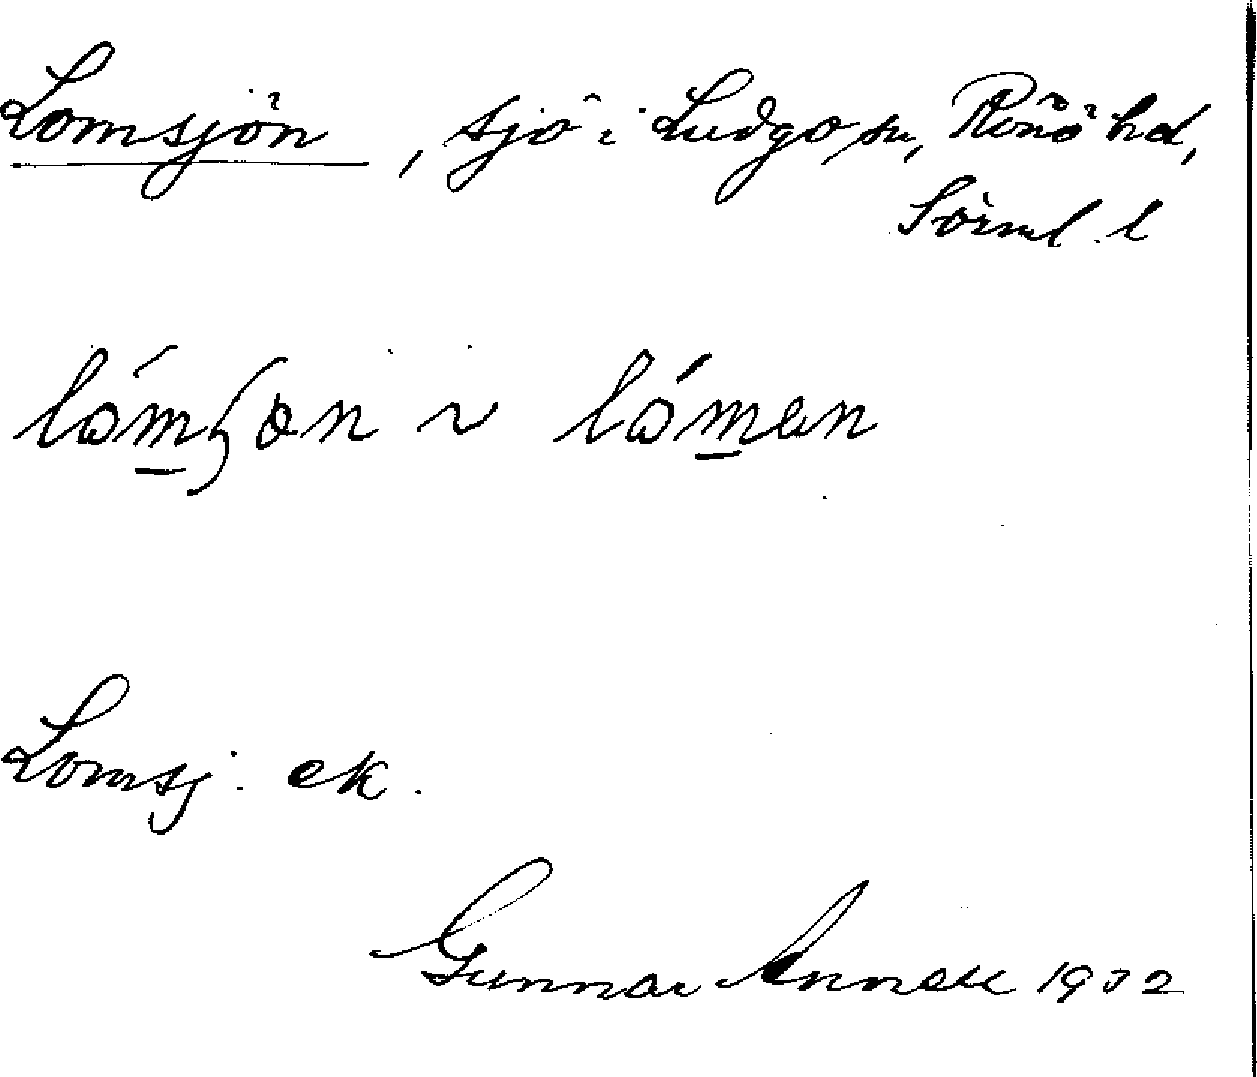 Lomsjön, sjö i Ludgo sn, Rönö hd,
Sörml. l
lóm̲ʃön ~ lóm̲ən
Lomsj. ek.
Gunnar Annell 1932